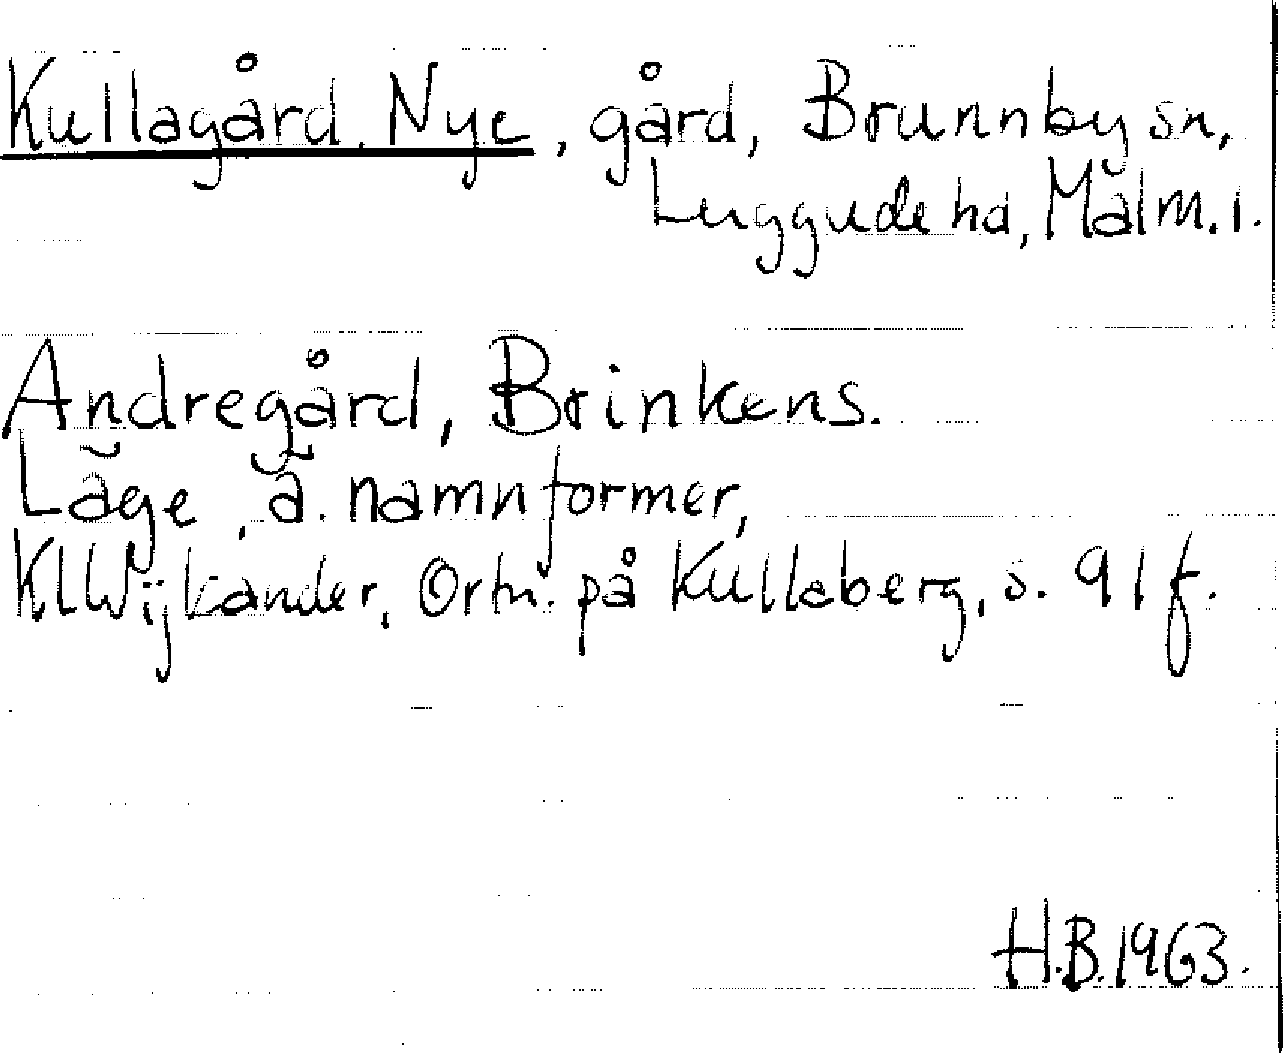 Kullagård, Nye, gård, Brunnby sn,
Luggude hd, Malm. l.
Andregård, Brinkens.
Läge, ä. namnformer,
KLWijkander, Ortn. på Kullaberg, s. 91 f.
H.B. 1963.